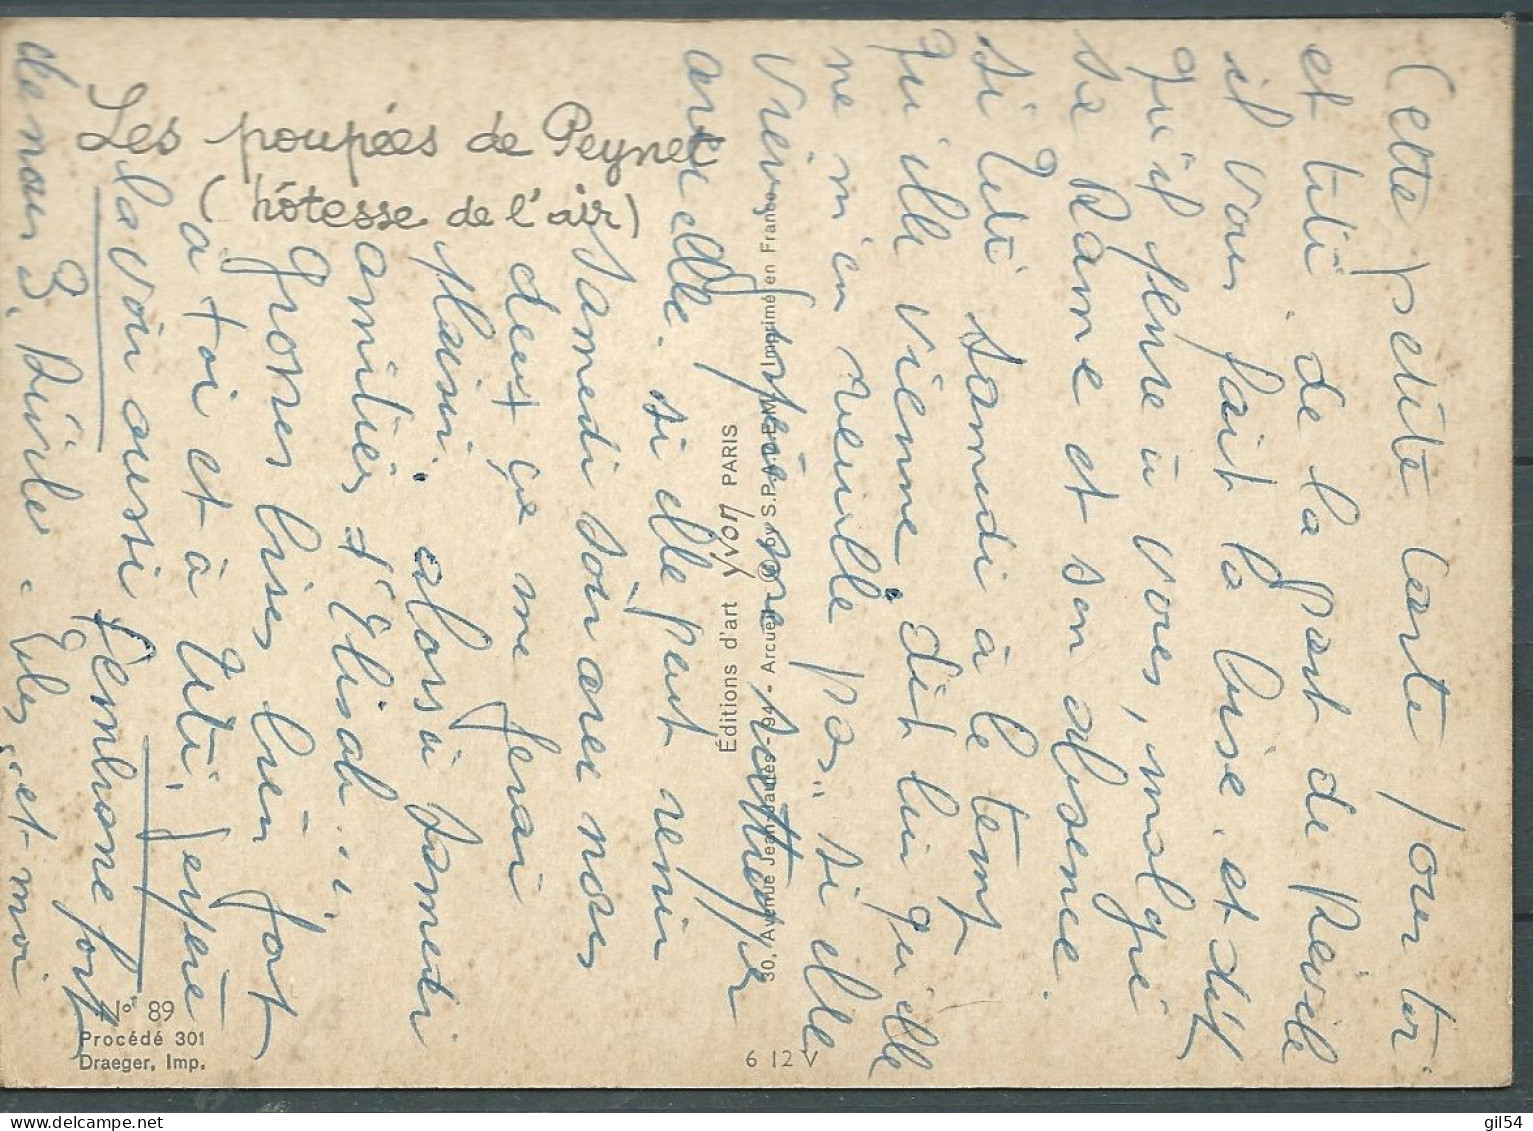 Les poupées de Peynet
(hôtesse de l'air)
Éditions d'art yvon PARIS
30, Avenue Jean-Jaurès - 94 - Arcueil - © by S.P.A.D.E.M. Imprimé en France
N° 89
Procédé 301
Draeger, Imp.
6 12 V
Cette petite carte pour toi
et titi de la part de
il vous fait la bise. et dit
qu'il pense à vous, malgré
sa Rame et son absence.
si titi samedi à le temps
qu'elle vienne, dit lui qu'elle
ne m'en veuille pas. si elle
vient
avec elle. si elle peut venir
samedi soir avec nous
deux ça me ferai
plaisir. alors à samedi
amitiés d'Elisab...
Grosses bises bien fort
a toi et à titi, j'espère
la voir aussi
de nous 3. et moi
gil54